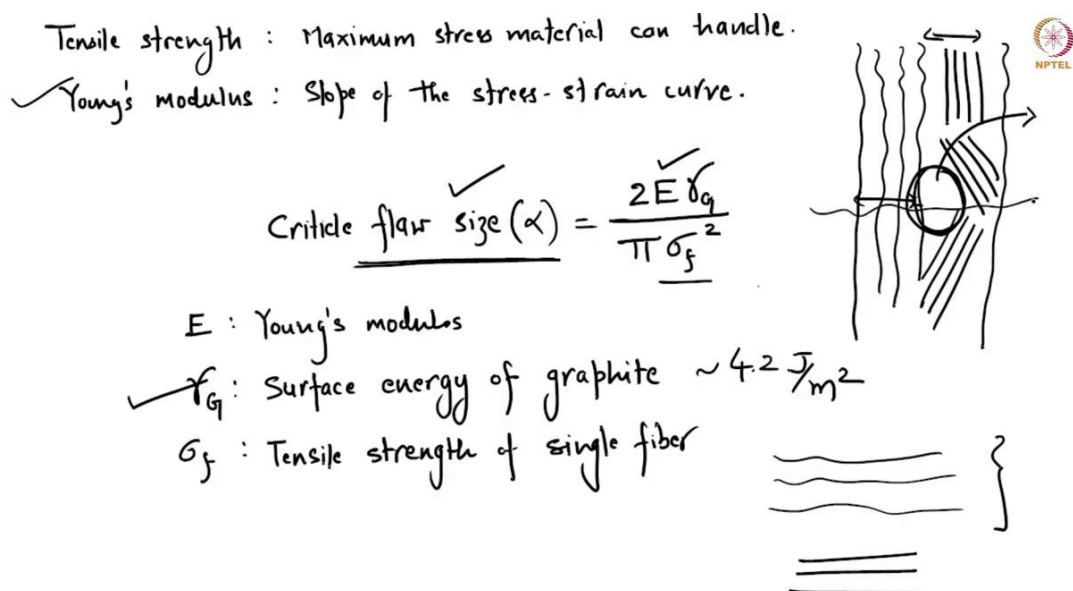 Tensile strength : Maximum stress material can handle.
NPTEL
Young's modulus : Slope of the stress-strain curve.
Criticle flaw size (α) = 2Eγ_G / πσ_f²
E : Young's modulos
γ_G : Surface energy of graphite ~ 4.2 J/m²
σ_f : Tensile strength of single fiber